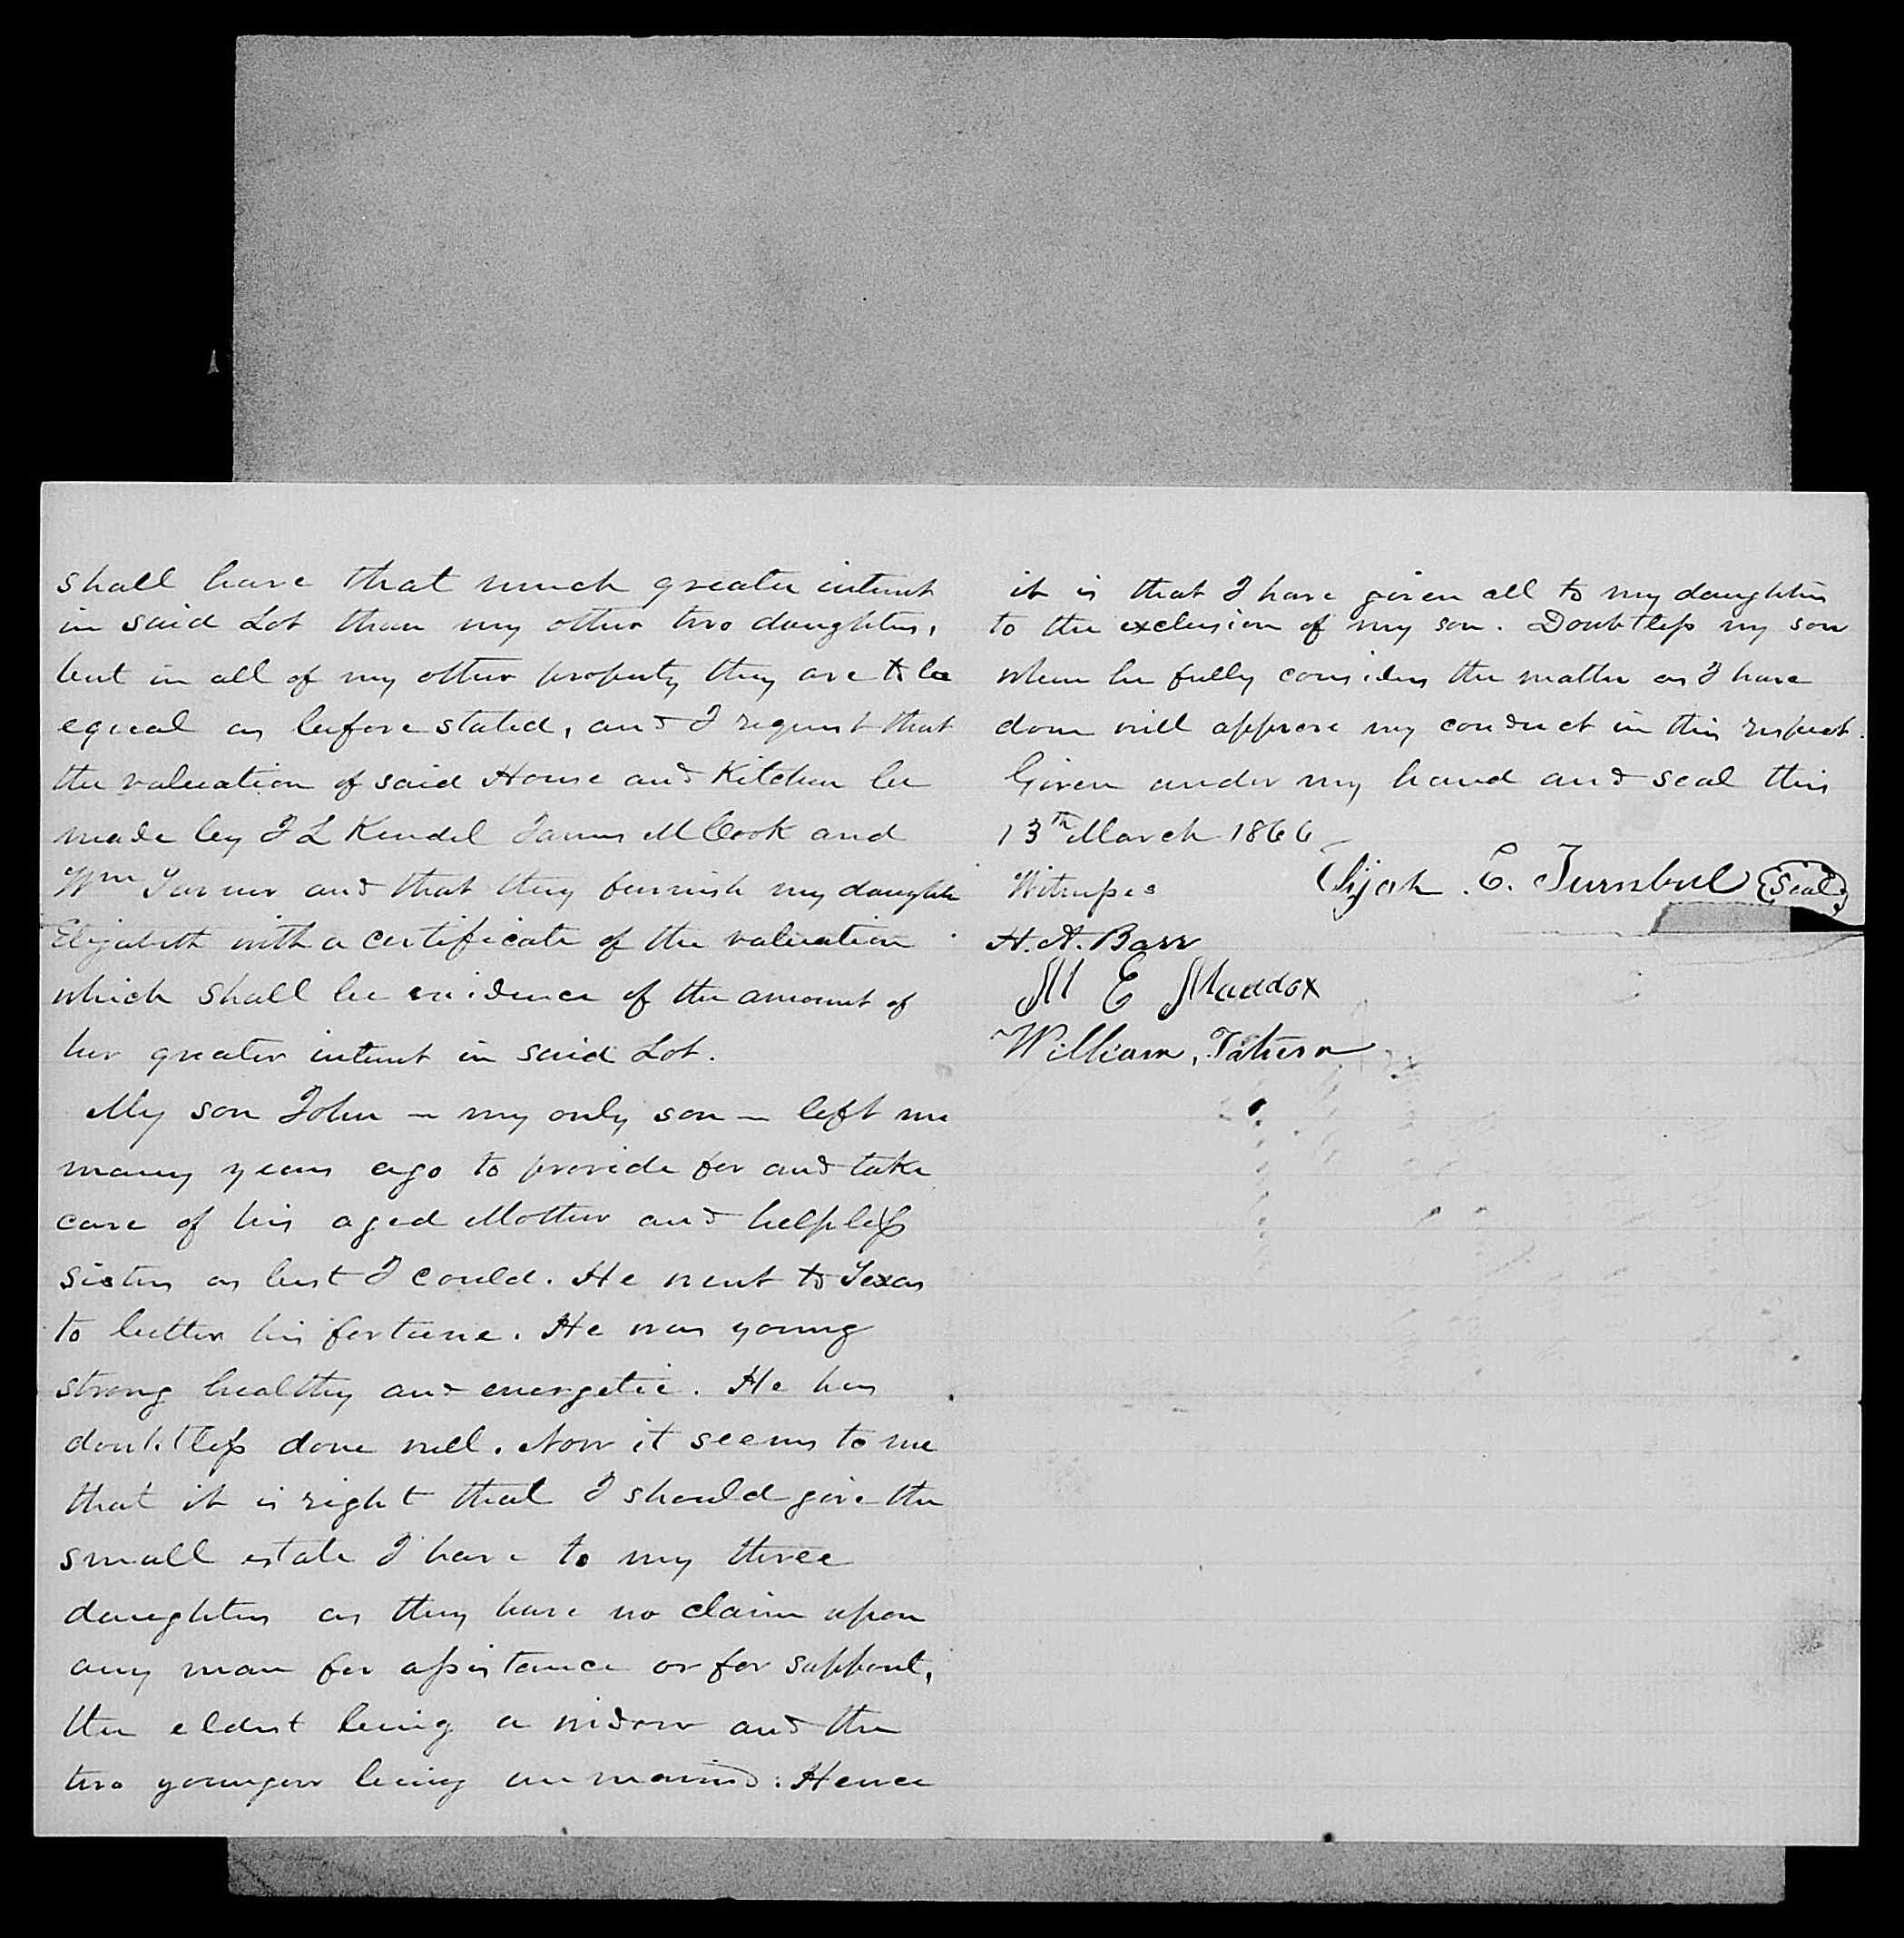 shall have that much greater interest
in said Lot than my other two daughters,
but in all of my other property they are to be
equal as before stated, and I request that
the valuation of said House and Kitchen be
made by J L Kendel James M Cook and
Wm Turner and that they furnish my daughter
Elizabeth with a certificate of the valuation
which shall be evidence of the amount of
her greater interest in said Lot.
My son John – my only son – left me
many years ago to provide for and take
care of his aged Mother and helpless
sisters as best I could. He went to Texas
to better his fortune. He was young
strong healthy and energetic. He has
doubtless done well. Now it seems to me
that it is right that I should give the
small estate I have to my three
daughters as they have no claim upon
any man for assistance or for support,
the eldest being a widow and the
two younger being unmarried: Hence
it is that I have given all to my daughters
to the exclusion of my son. Doubtless my son
when he fully considers the matter as I have
done will approve my conduct in this respect.
Given under my hand and seal this
13th March 1866
Witnesses
Elijah E. Turnbul (Seal)
H. A. Barr
M E Maddox
William,